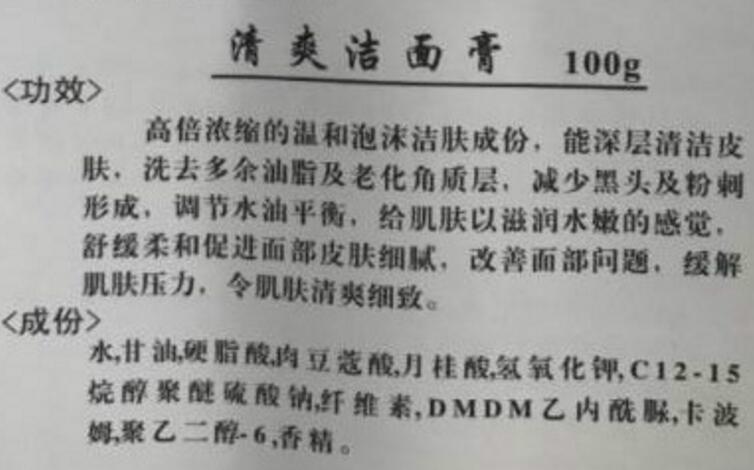 清爽洁面膏 100g
<功效>
高倍浓缩的温和泡沫洁肤成份，能深层清洁皮
肤，洗去多余油脂及老化角质层，减少黑头及粉刺
形成，调节水油平衡，给肌肤以滋润水嫩的感觉，
舒缓柔和促进面部皮肤细腻，改善面部问题，缓解
肌肤压力，令肌肤清爽细致。
<成份>
水,甘油,硬脂酸,肉豆蔻酸,月桂酸,氢氧化钾,C12-15
烷醇聚醚硫酸钠,纤维素,DMDM乙内酰脲,卡波
姆,聚乙二醇-6,香精。